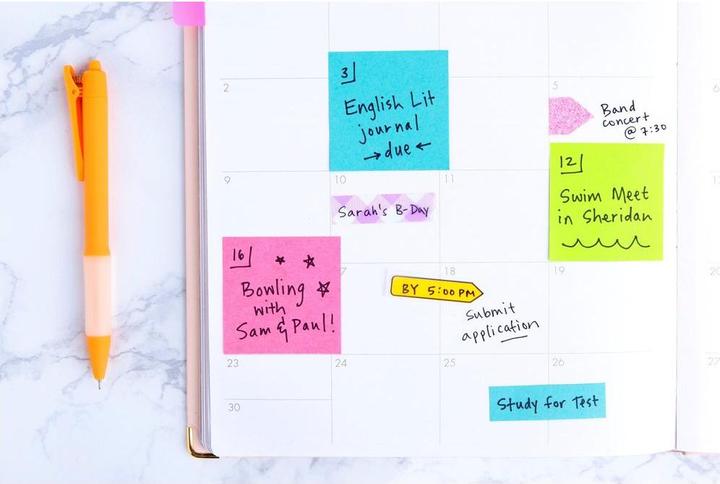 2
3
English Lit
journal
→ due ←
5
Band
concert
@ 7:30
6
9
10
11
12
Swim Meet
in Sheridan
Sarah's B-Day
16
Bowling
with
Sam & Paul!
18
19
BY 5:00 PM
Submit
application
23
24
25
26
27
Study for Test
30